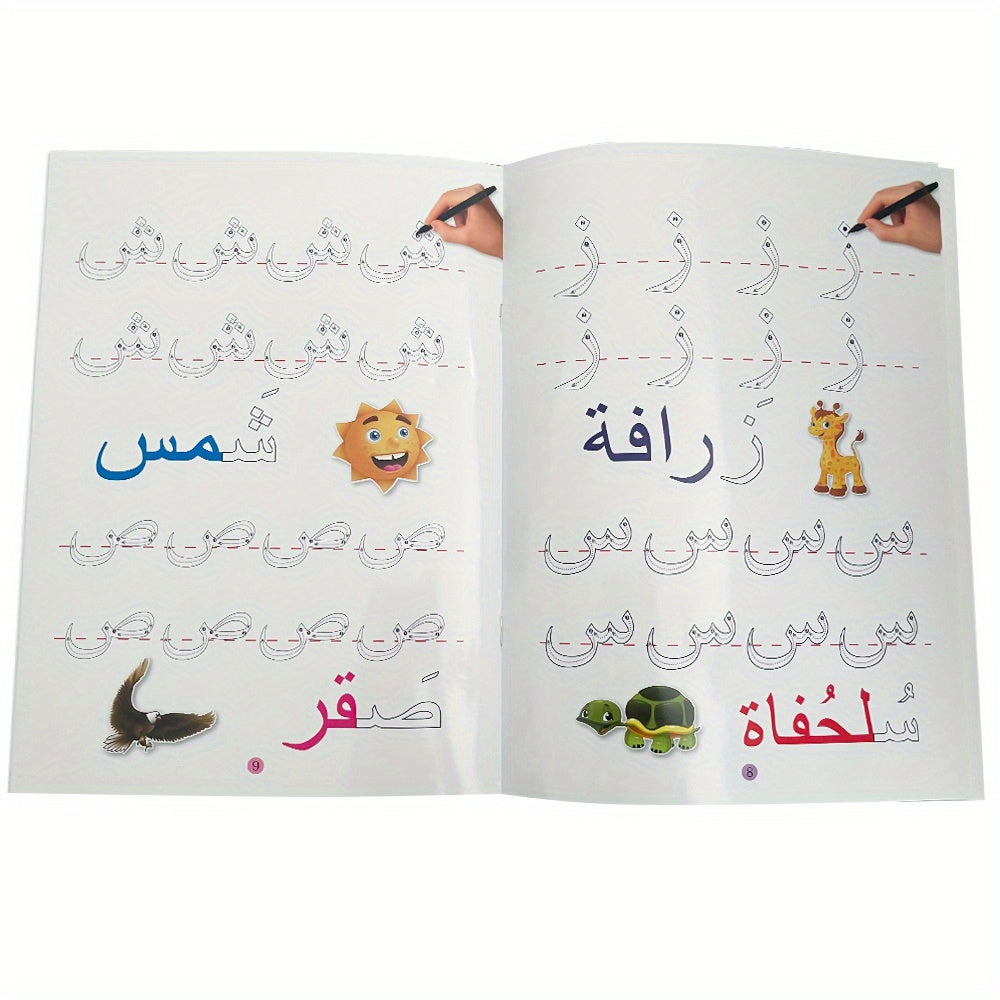 ز ز ز ز
ز ز ز ز
زَرافة
س س س س
س س س س
سُلحُفاة
8
ش ش ش ش
ش ش ش ش
شَمس
ص ص ص ص
ص ص ص ص
صَقر
9